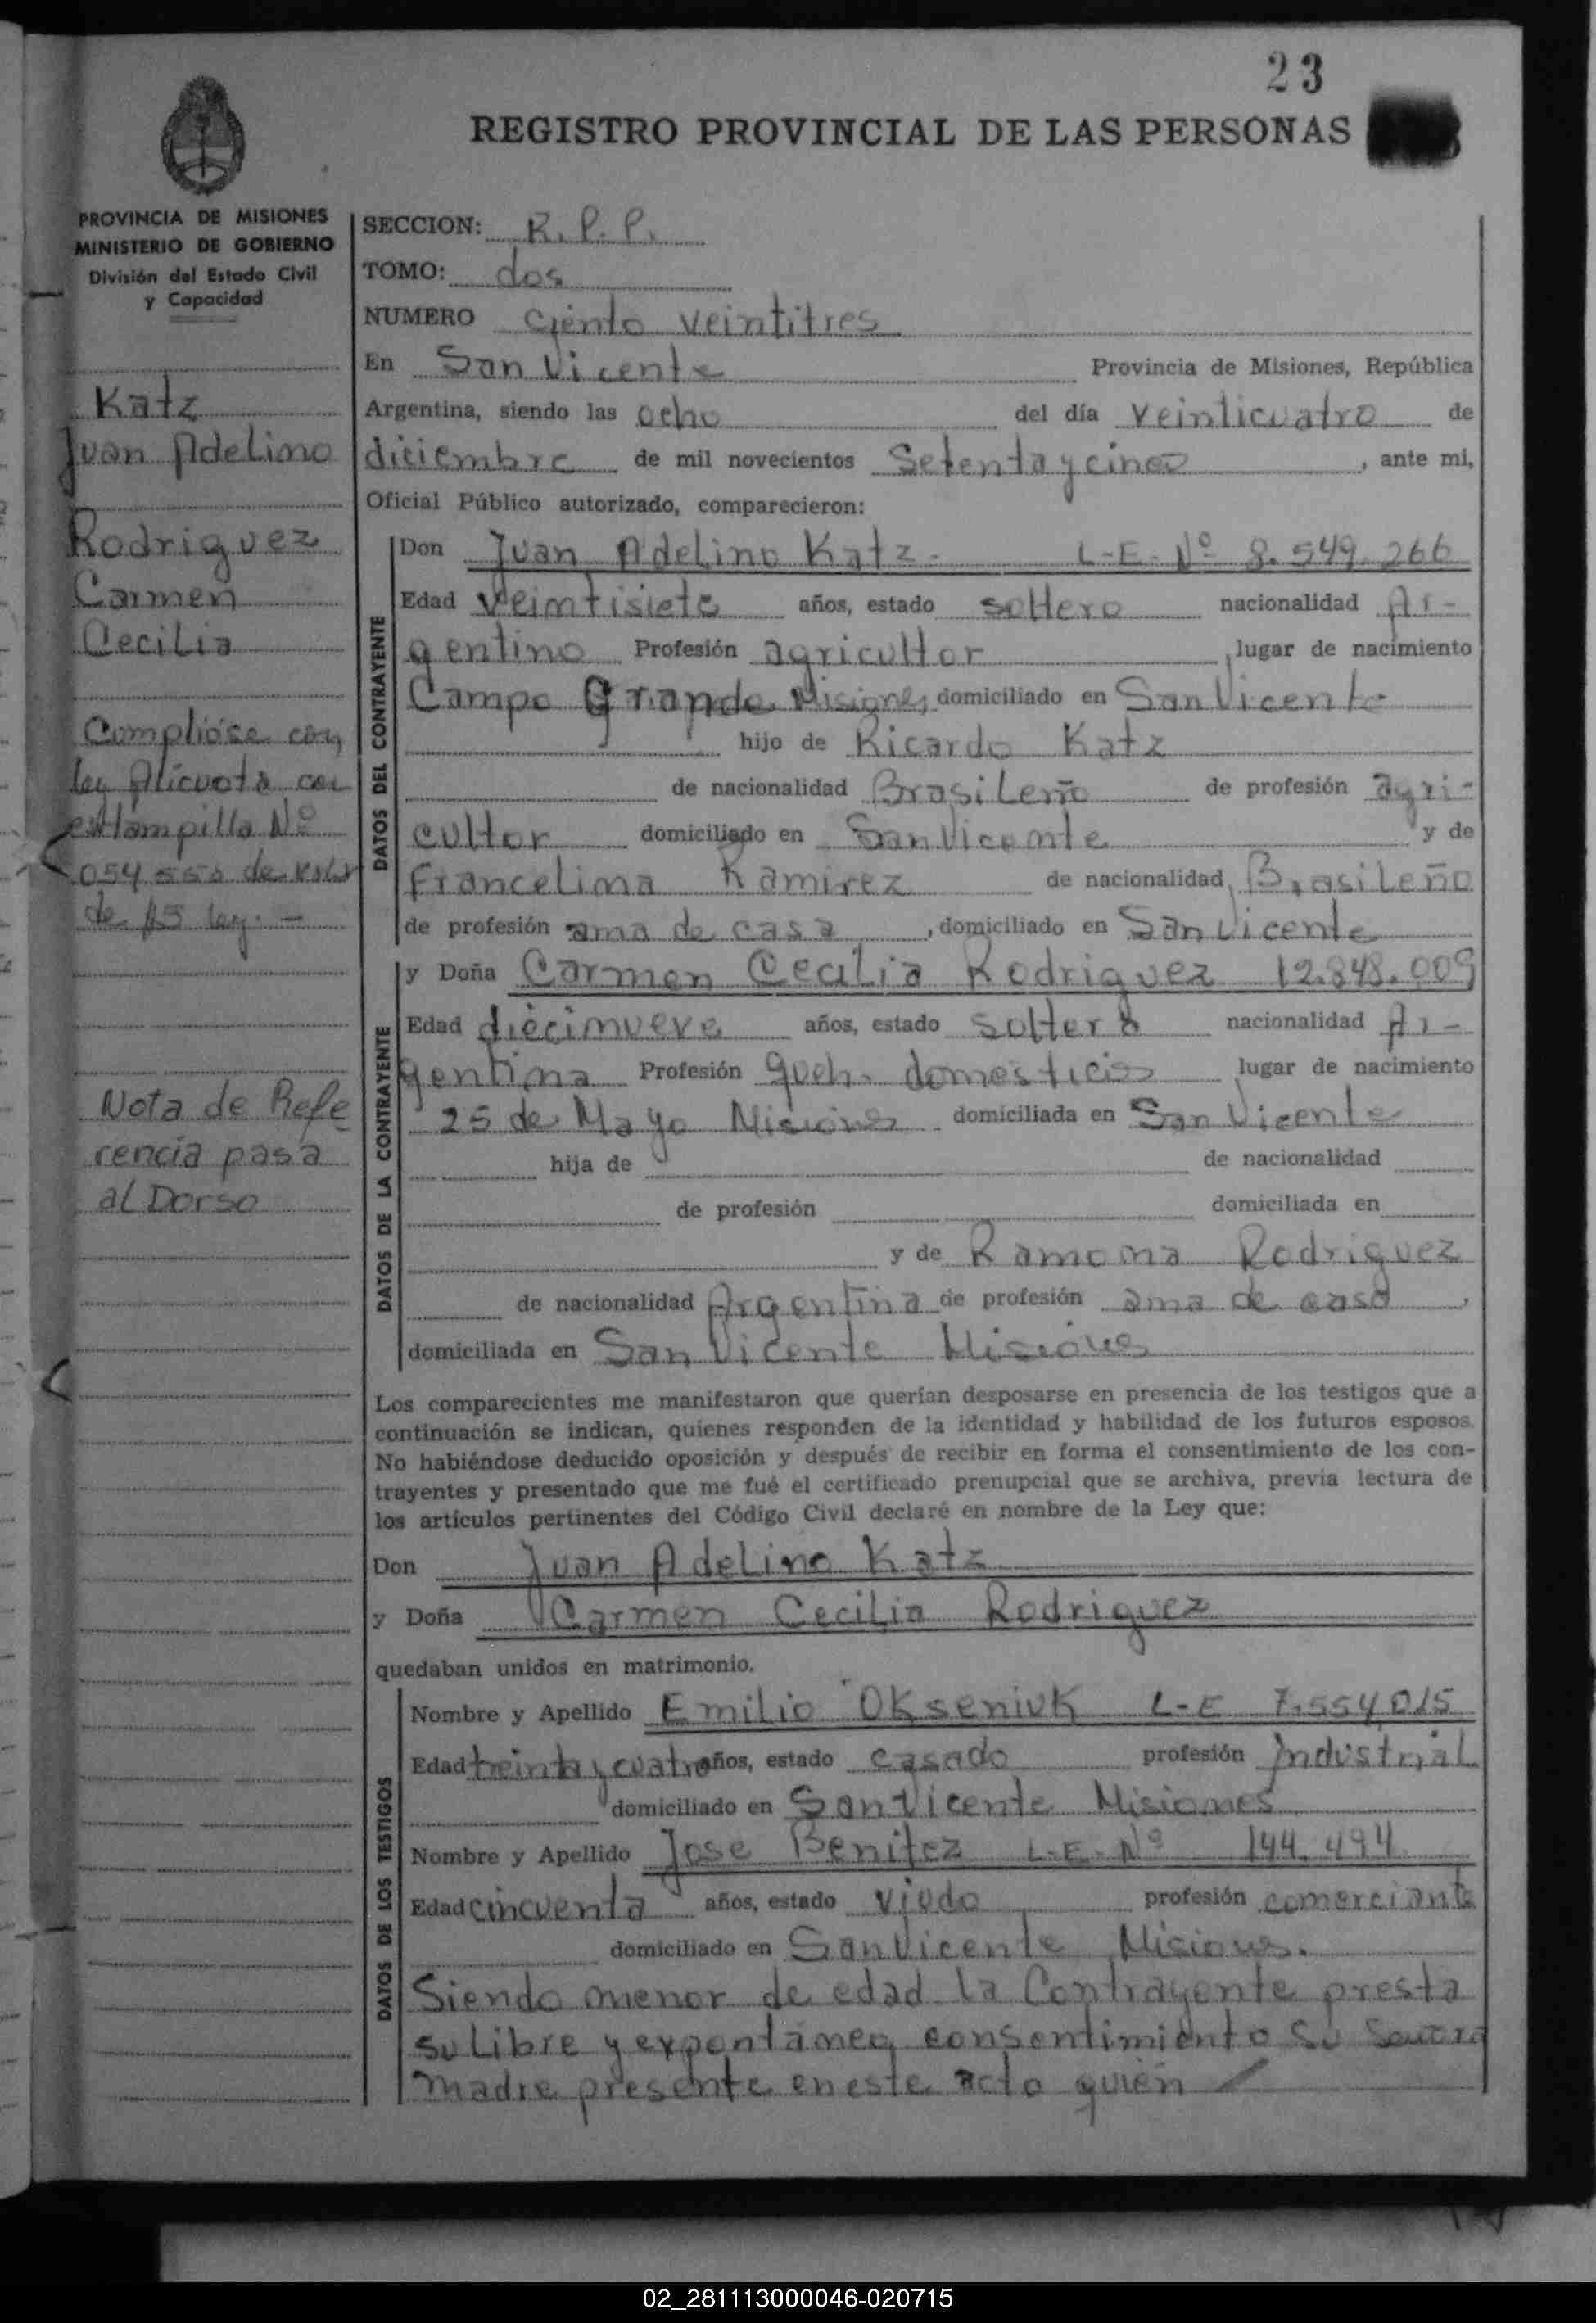 23
REGISTRO PROVINCIAL DE LAS PERSONAS
PROVINCIA DE MISIONES
MINISTERIO DE GOBIERNO
División del Estado Civil
y Capacidad
Katz
Juan Adelino
Rodriguez
Carmen
Cecilia
Complióse con
ley Alicuota con
estampilla Nº
de $15 ley. -
Nota de Refe
rencia pasa
al Dorso
SECCION: R. P. P.
TOMO: dos
NUMERO ciento veintitres
En San Vicente Provincia de Misiones, República
Argentina, siendo las ocho del día veinticuatro de
diciembre de mil novecientos Setenta y cinco, ante mi,
Oficial Público autorizado, comparecieron:
DATOS DEL CONTRAYENTE
Don Juan Adelino Katz- L-E-Nº 8.549.266
Edad veintisiete años, estado soltero nacionalidad Ar-
gentino Profesión agricultor, lugar de nacimiento
Campo Grande Misiones domiciliado en San Vicente
hijo de Ricardo Katz
de nacionalidad Brasileño de profesión agri-
cultor domiciliado en San Vicente y de
Francelina Ramirez de nacionalidad Brasileño
de profesión ama de casa, domiciliado en San Vicente
DATOS DE LA CONTRAYENTE
y Doña Carmen Cecilia Rodriguez 12.848.009
Edad diecinueve años, estado soltera nacionalidad Ar-
gentina Profesión queh. domesticos lugar de nacimiento
25 de Mayo Misiones domiciliada en San Vicente
hija de de nacionalidad
de profesión domiciliada en
y de Ramona Rodriguez
de nacionalidad Argentina de profesión ama de casa,
domiciliada en San Vicente Misiones
Los comparecientes me manifestaron que querían desposarse en presencia de los testigos que a
continuación se indican, quienes responden de la identidad y habilidad de los futuros esposos.
No habiéndose deducido oposición y después de recibir en forma el consentimiento de los con-
trayentes y presentado que me fué el certificado prenupcial que se archiva, previa lectura de
los artículos pertinentes del Código Civil declaré en nombre de la Ley que:
Don Juan Adelino Katz
y Doña Carmen Cecilia Rodriguez
quedaban unidos en matrimonio.
DATOS DE LOS TESTIGOS
Nombre y Apellido Emilio Okseniuk L-E 7.554.015
Edad treinta y cuatro años, estado casado profesión Industrial
domiciliado en San Vicente Misiones
Nombre y Apellido Jose Benitez L.E. Nº 144.494
Edad cincuenta años, estado viudo profesión comerciante
domiciliado en San Vicente Misiones.
Siendo menor de edad la Contrayente presta
su Libre y expontaneo consentimiento su Señora
madre presente en este acto quien
02_281113000046-020715